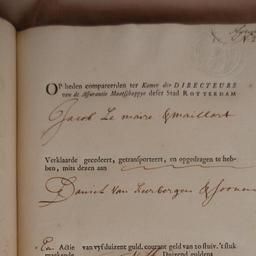 OP heden compareerden ter Kamer der DIRECTEURS
van de Assurantie Maatschappye deser Stad ROTTERDAM
Jacob Le maire & maillart
Verklaarde gecedeert, getransporteert, en opgedragen te heb-
ben, mits dezen aan
Daniel van
En Actie van vyf duizent guld. courant geld van 20 stuiv. 't stuk
Duizend guldens